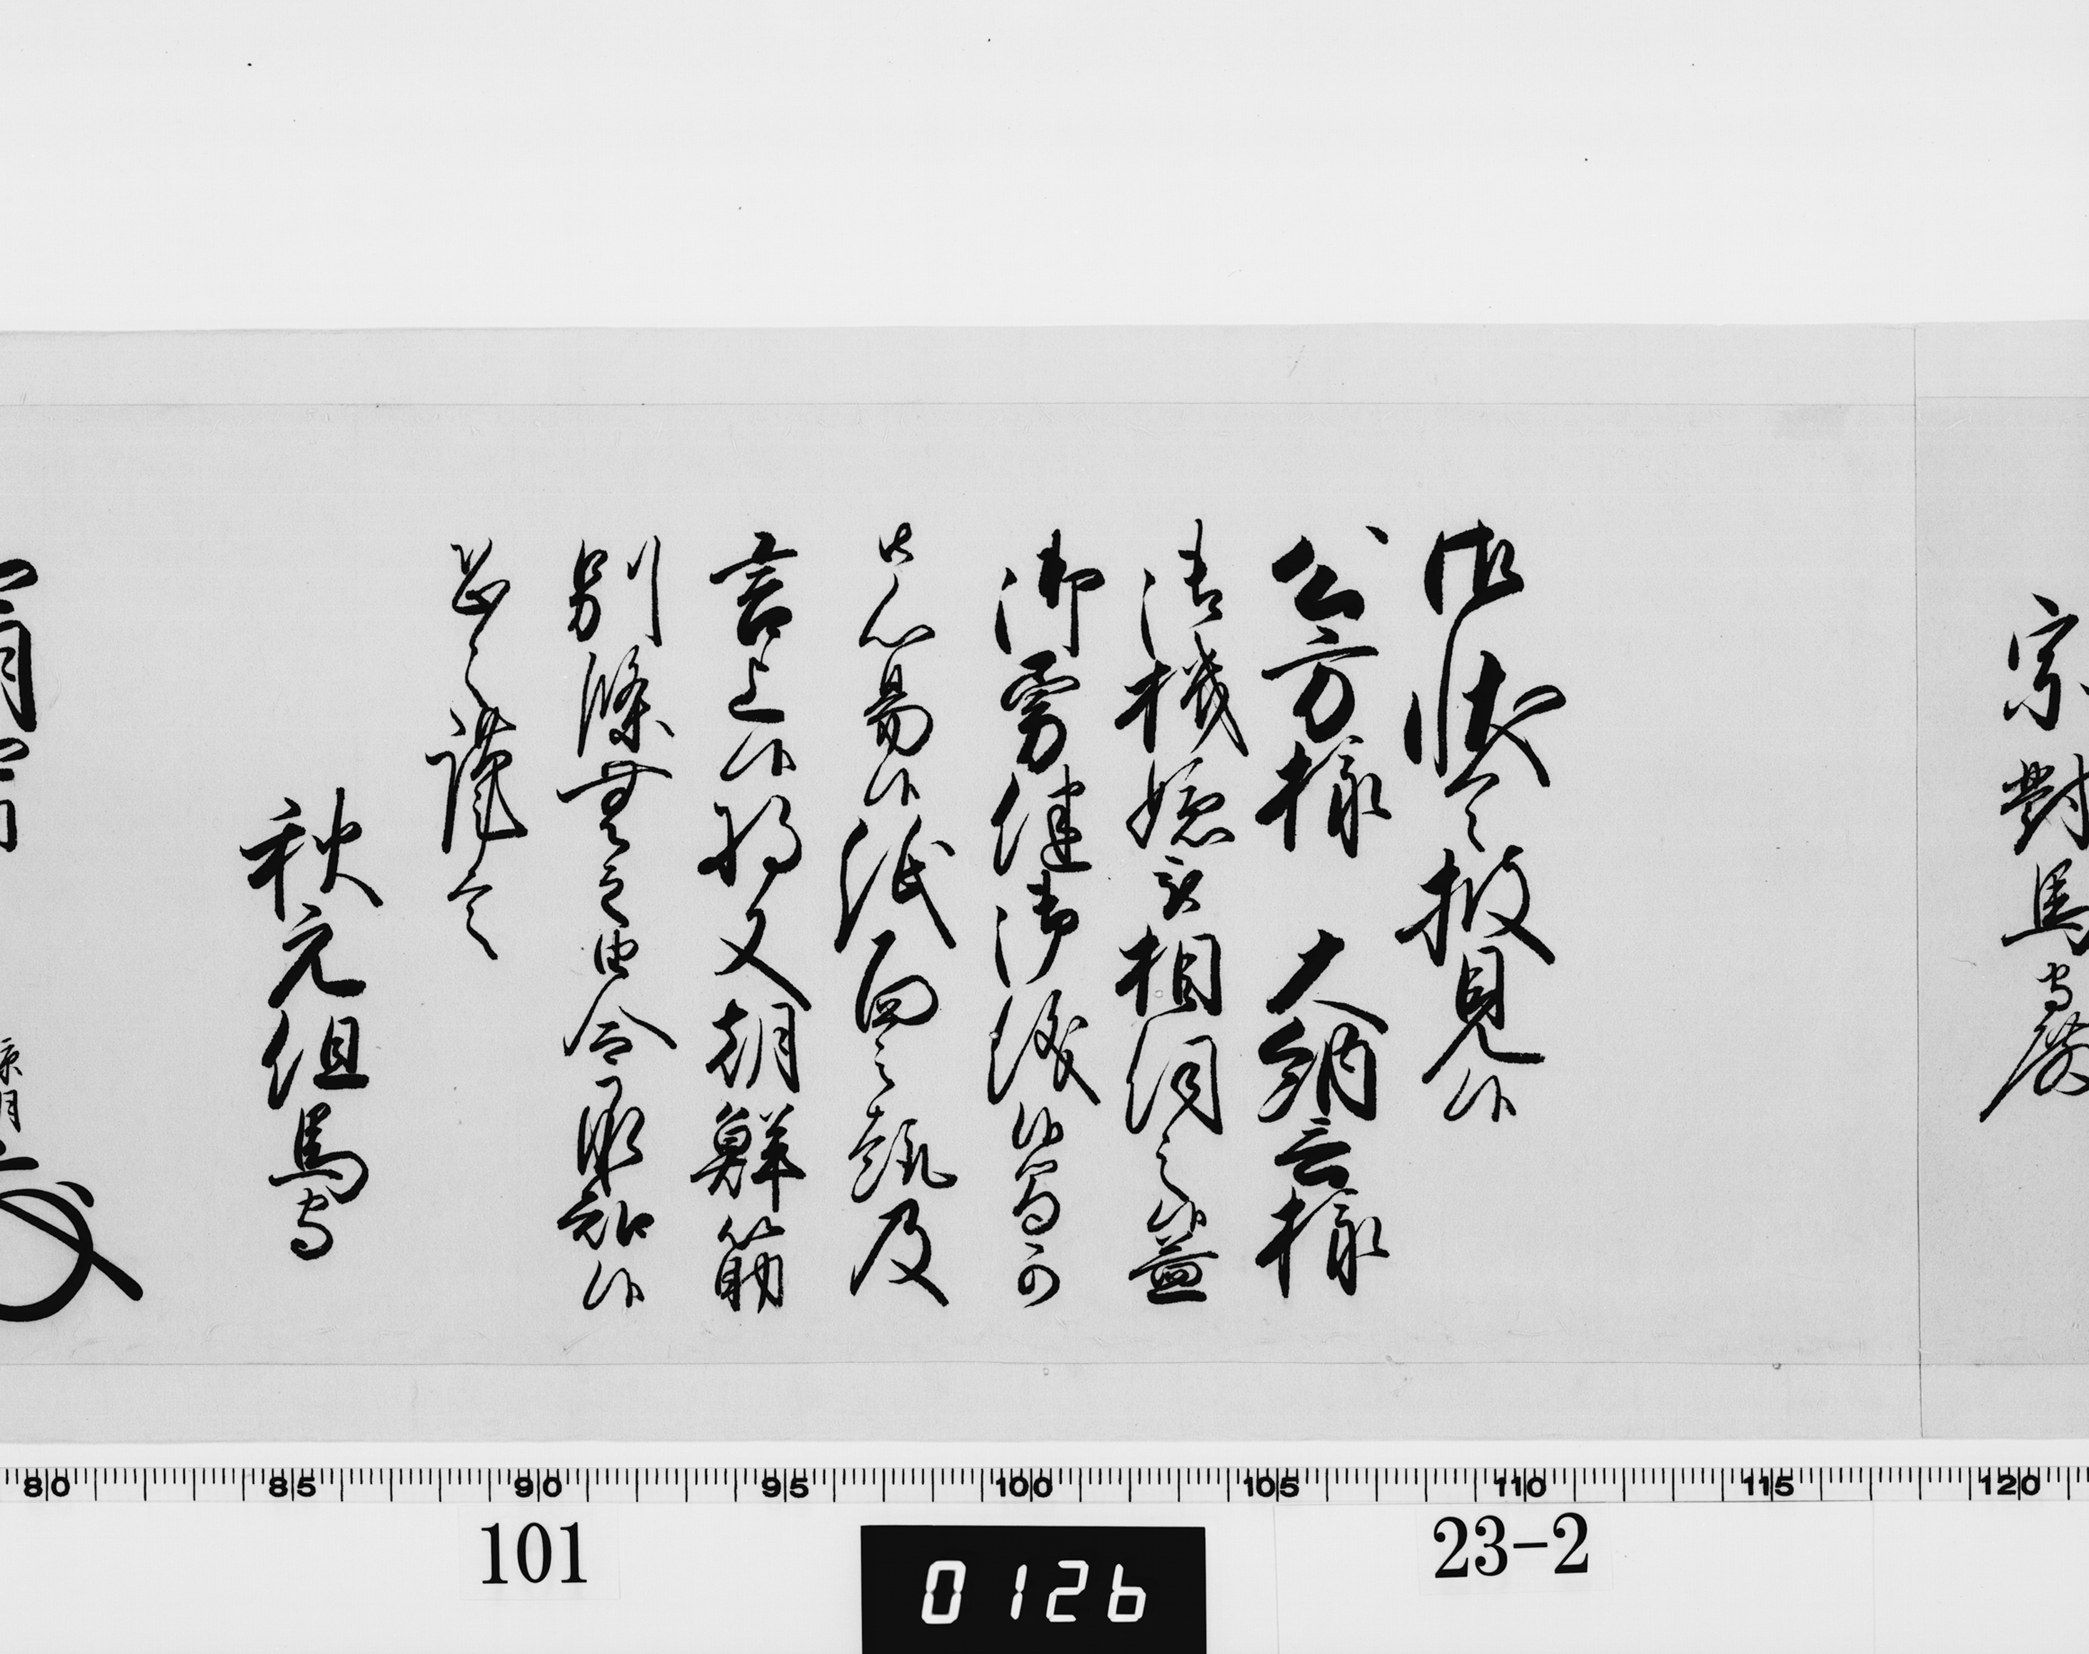 宗對馬守殿
御状令披見候
公方様 大納言様
御機嫌被相伺之候益
御勇健御儀候間可
御心易候紙面之趣及
言上候将又朝鮮筋
別條無之由令承知候
恐々謹言
秋元但馬守
101
23-2
0126
80 85 90 95 100 105 110 115 120